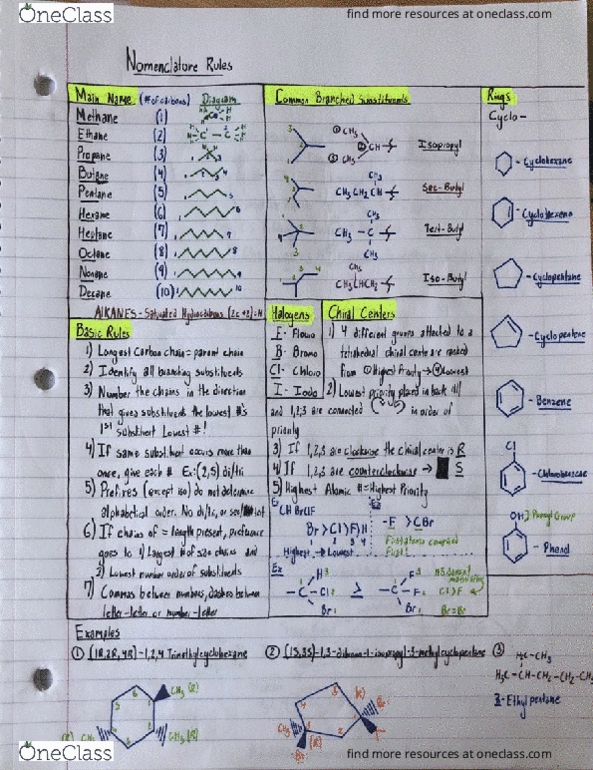 OneClass
find more resources at oneclass.com
Nomenclature Rules
Main Name (# of carbons) Diagram
Methane (1)
Ethane (2)
Propane (3)
Butane (4)
Pentane (5)
Hexane (6)
Heptane (7)
Octane (8)
Nonane (9)
Decane (10)
ALKANES - Saturated Hydrocarbons
Common Branched Substituents
Isopropyl
CH3 CH2 CH
Sec-Butyl
CH3 - C
Tert-Butyl
CH3CHCH2
Iso-Butyl
Rings
Cyclo-
- Cyclohexane
- Cyclohexene
- Cyclopentane
- Cyclopentene
- Benzene
Cl
OH
- Phenol
Basic Rules
1) Longest Carbon chain = parent chain
2) Identify all branching substituents
3) Number the chains in the direction
that gives substituents the lowest #'s
1st substituent Lowest #!
4) If same substituent occurs more than
once, give each # Ex: (2,5) di/tri
5) Prefixes (except iso) do not determine
alphabetical order. No di/tri, or sec/
6) If chains of = length present, preference
goes to 1) Largest # of size chains and
2) Lowest number order of substituents
7) Commas between numbers, dashes between
letter-letter or number-letter
Halogens
F - Fluoro
B - Bromo
Cl - Chloro
I - Iodo
Chiral Centers
1) 4 different groups attached to a
tetrahedral chiral center are ranked
from Highest Priority → Lowest
2) Lowest priority placed in back
and 1,2,3 are connected in order of
priority
3) If 1,2,3 are clockwise the chiral center is R
4) If 1,2,3 are counterclockwise → S
5) Highest Atomic # = Highest Priority
Ex
CHBrClF
Br > Cl > F > H
1 2 3 4
Highest → Lowest
Ex
-F > CBr
First atoms compared
First!
Ex
Cl > F
Br = Br
Examples
① (1R,2R,4R)-1,2,4 Trimethylcyclohexane
② (1S,3S)-1,3-dibromo-1-isopropyl-3-methylcyclopentane
③
H3C-CH3
H3C-CH-CH2-CH2-CH3
3-Ethyl pentane
CH3 (R)
OneClass
find more resources at oneclass.com